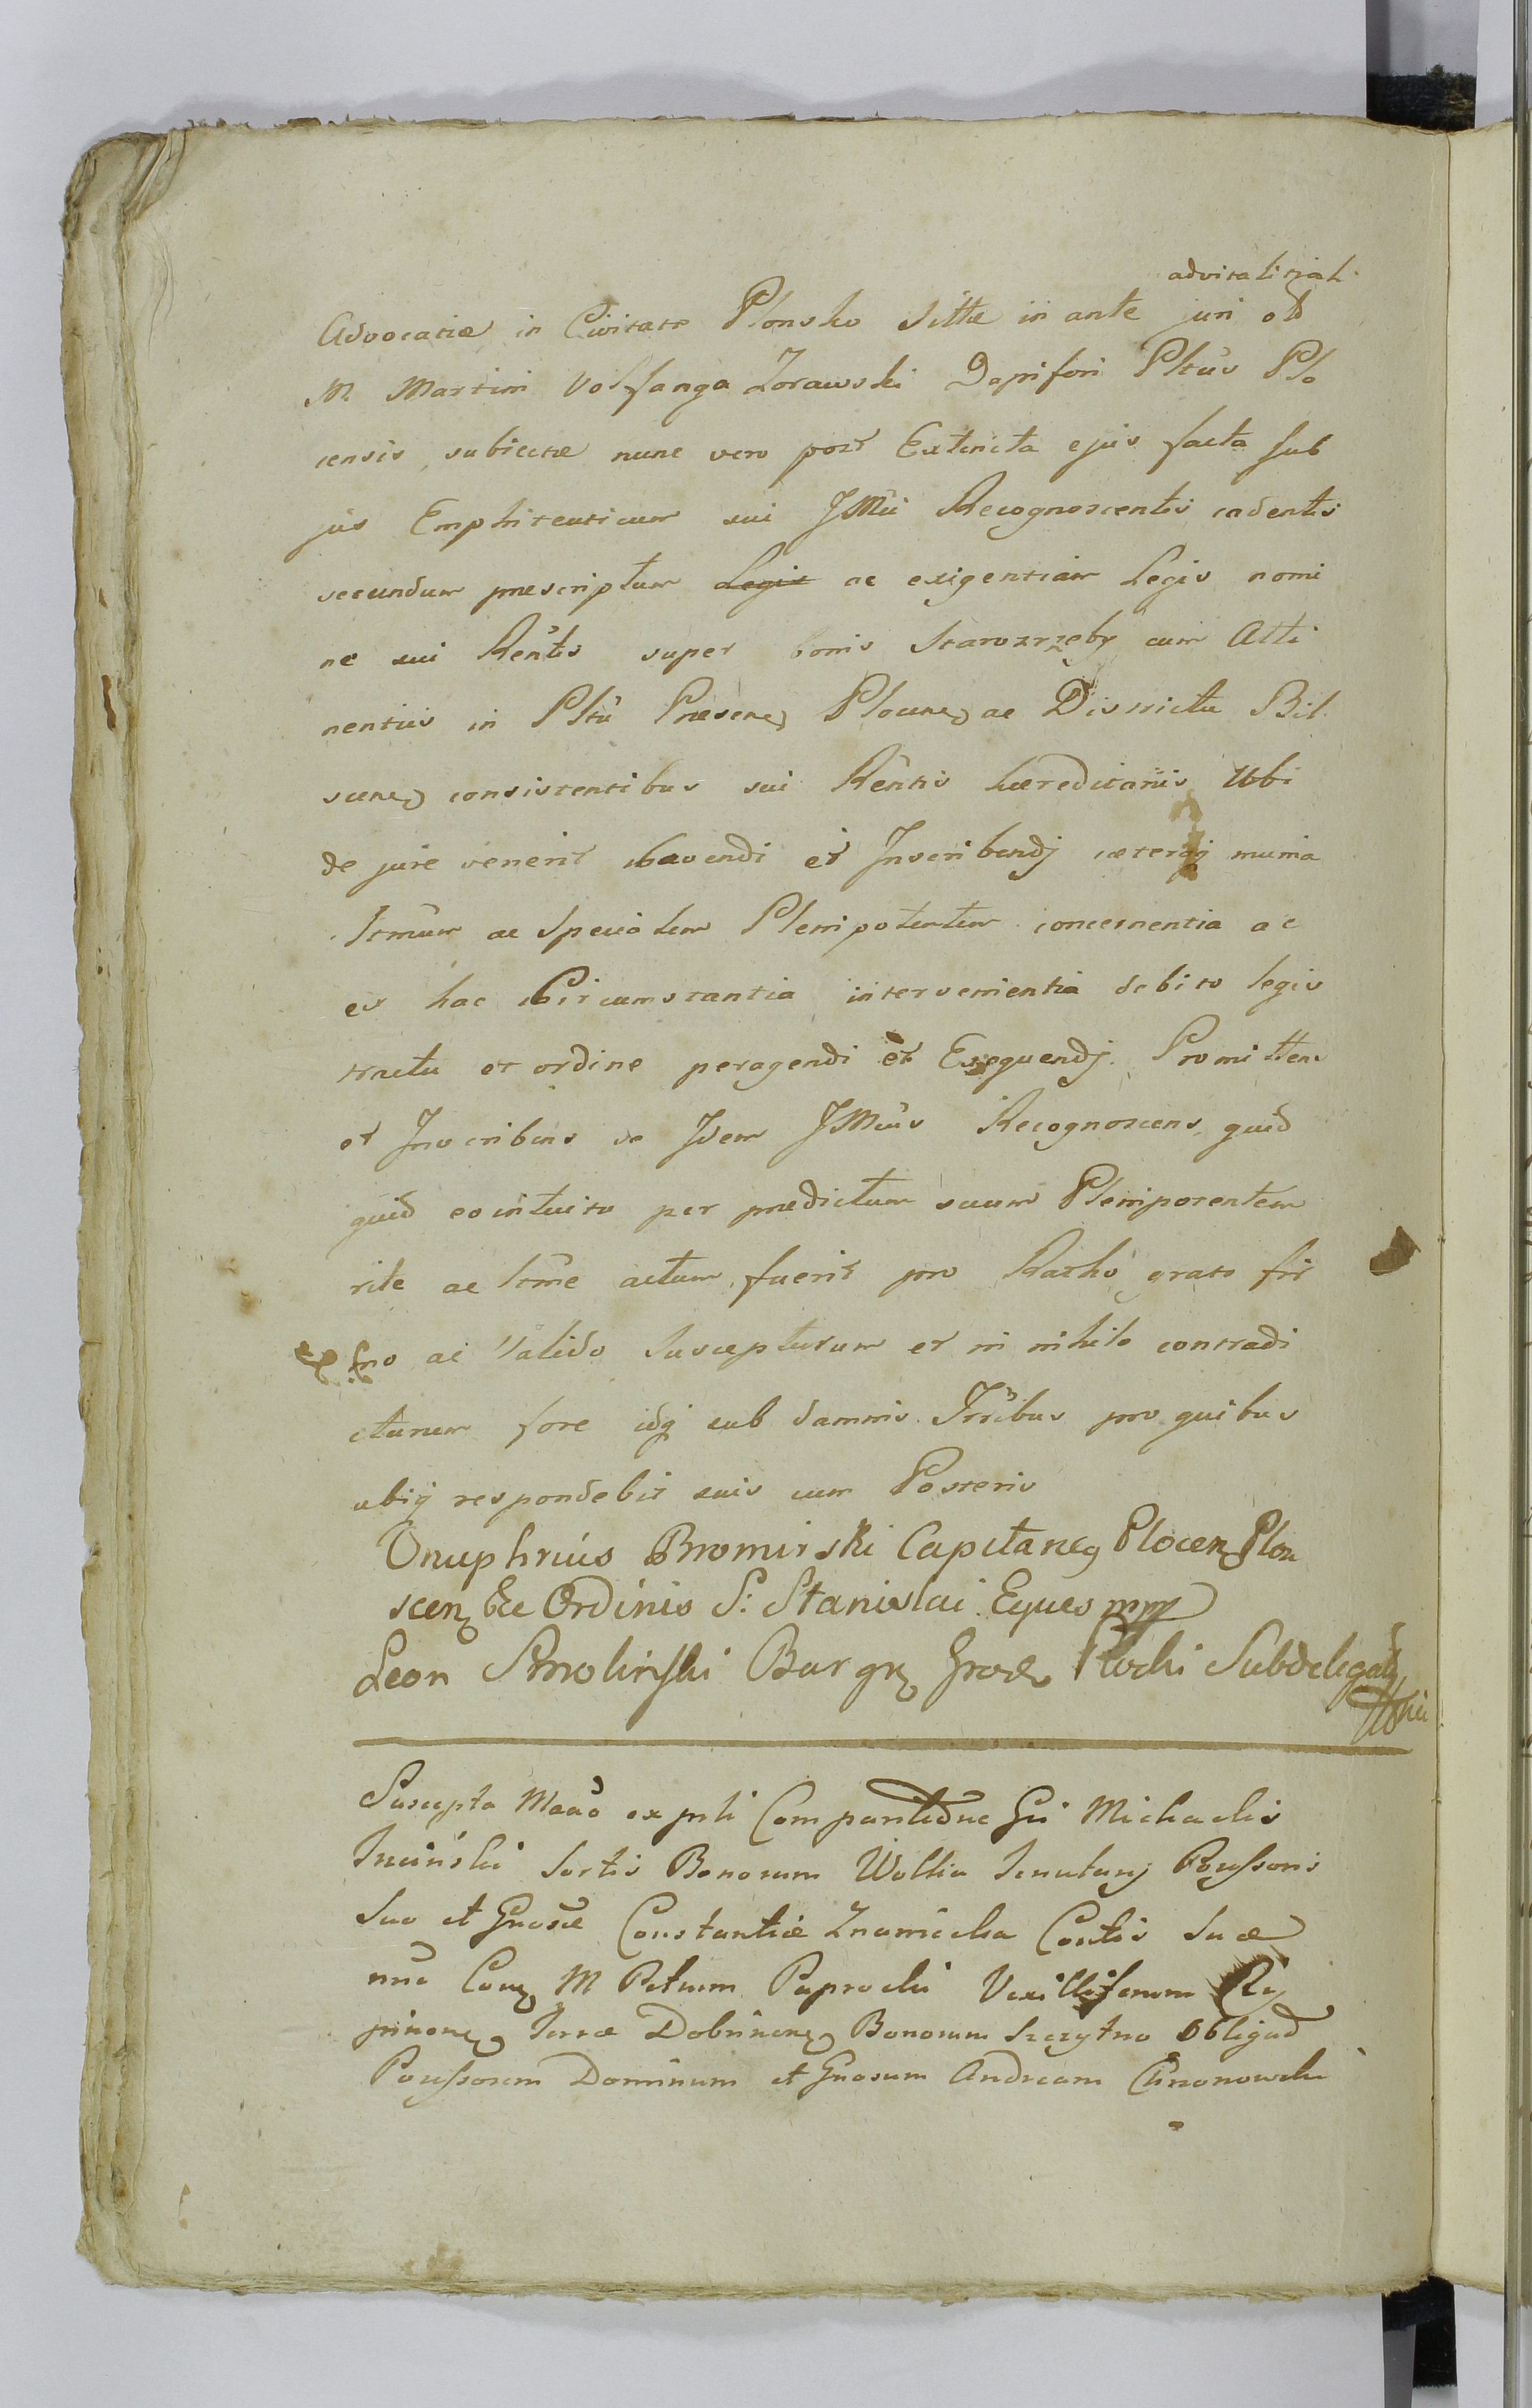 advitalitial.
Advocatiæ in Civitate Plonsko sittæ in ante juri olD
M. Martini Volfanga Zorawski Dapiferi Pltus Plo
censis, subiectæ nunc vero post Extincta ejus facta sub
jus Emphiteuticum sui JMci Recognoscentis cadentis
secundum præscriptum Legis ac exigentiam Legis nomi
ne sui Rentis super bonis Starozrzeby cum Atti
nentiis in Pltu Præsene Plocene ac Districtu Bil
scene consistentibus sui Rentis hæreditariis Ubi
de jure venerit cavendi et Inscribendj cæteraqj munia
ltmum ac Specialem Plenipotentem concernentia ac
ex hac Circumstantia intervenientia debito legis
tractu et ordine peragendi et Exequendj. Promittens
et Inscribens se Idem JMcus Recognoscens, quid
quid eo intuitu per prædictum suum Plenipotentem
rite ac ltme actum fuerit pro Ratho grato fir
mo ac Valido Suscepturum et in nihilo contradi
cturum fore idqj sub damnis Trribus pro quibus
ubiqj respondebit suis cum Posteris
Onuphrius Bromirski Capitaneg Plocen Plon
scen Ecc Ordinis S: Stanislai Eques mpp
Leon Smolinski Burgr Grodz Plocki Subdelegat
Suscepta Mano ex prli Comparitione Gsi Michaelis
sortis Bonorum Wolka Tenutarj Possoris
suo et Gnosæ Constantiæ Znamiecka Contis suæ
nne Cone M Petrum Paprocki Vexilliferum Ry
pinene Terræ Dobrinene Bonorum Szczytno Obligad
Possessorem Dominum et Gnosum Andream Chrzonowski